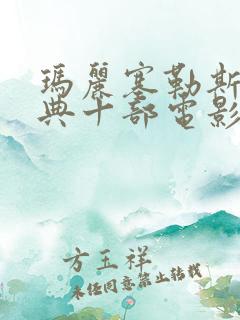 瑪麗塞勒斯
典十部電影
方玉祥
未經同意禁止轉載